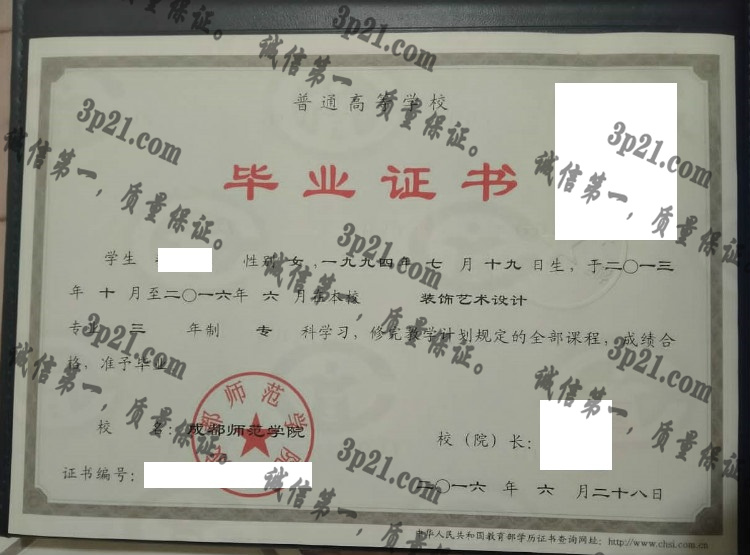 普通高等学校
毕业证书
学生 性别 女,一九九四年 七 月 十九 日生,于二〇一三
年 十 月至二〇一六年 六 月在本校 装饰艺术设计
专业 三 年制 专 科学习,修完教学计划规定的全部课程,成绩合
格,准予毕业
校 名:成都师范学院
校(院)长:
证书编号:
二〇一六 年 六 月二十八日
中华人民共和国教育部学历证书查询网址:http://www.chsi.com.cn
成都师范学院
3p21.com
诚信第一,质量保证。
3p21.com
诚信第一,质量保证。
3p21.com
诚信第一,质量保证。
3p21.com
诚信第一,质量保证。
3p21.com
诚信第一,质量保证。
3p21.com
诚信第一,质量保证。
3p21.com
诚信第一,质量保证。
质量保证。